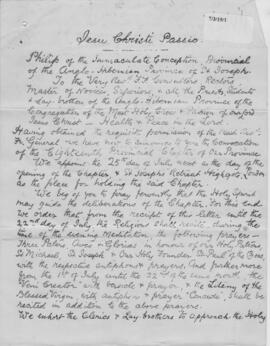 Jesu Christi Passio.
Philip of the Immaculate Conception, Provincial
of the Anglo-Hibernian Province of St Joseph
To the Very Rev. Fr. Consultors, Rectors
Master of Novices, Superiors, & all the Priests, Students
& Lay-brothers of the Anglo-Hibernian Province of the
Congregation of the Most Holy Cross & Passion of our Lord
Jesus Christ — Health & Peace in the Lord.
Having obtained the requisite permission of the
Fr. General we have now to announce to you the Convocation
of the Eighteenth Provincial Chapter of Our Province
We appoint the 25th day of July next as the day of the
opening of the Chapter, & St Joseph's Retreat Highgate, London
as the place for holding the said Chapter.
We beg of you to pray fervently that the Holy Spirit
may guide the deliberations of the Chapter. For this end
we order that from the reception of this letter until the
22nd day of July, the Religious shall recite, during the
time of the evening Meditation, the following prayers —
Three Paters, Aves & Glorias in honour of our Holy Patrons,
St Michael, St Joseph & Our Holy Founder St Paul of the Cross,
with the respective antiphons & prayers. And furthermore
from the 1st of July until the 22nd of the same month the
"Veni Creator" with versicle & prayer, & the Litany of the
Blessed Virgin with antiphon & prayer "Concede" shall be
recited in addition to the above prayers.
We exhort the Clerics & Lay brothers to approach the Holy